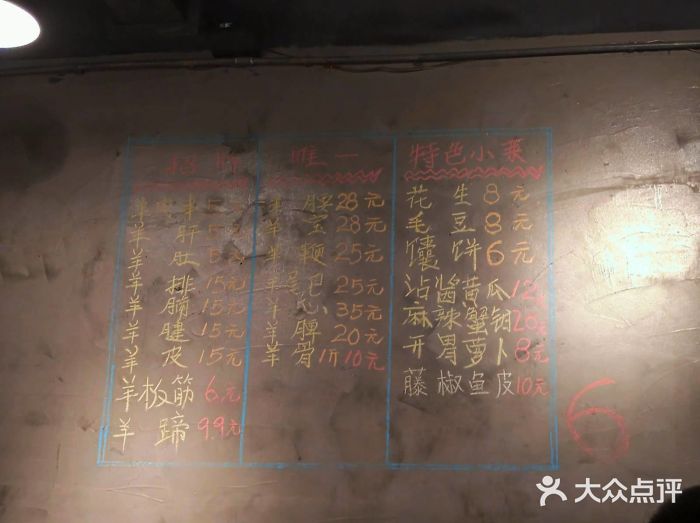 招牌
羊
羊肝
羊肚
羊排 15元
羊腩 15元
羊腱 15元
羊皮 15元
羊板筋 6元
羊蹄 9.9元
唯一
羊腰 28元
羊宝 28元
羊鞭 25元
羊 25元
羊心 35元
羊脾 20元
羊骨 1斤 10元
特色小菜
花生 8元
毛豆 8元
馕饼 6元
沾酱黄瓜 12元
麻辣蟹钳 28元
开胃萝卜 8元
藤椒鱼皮 10元
6
大众点评